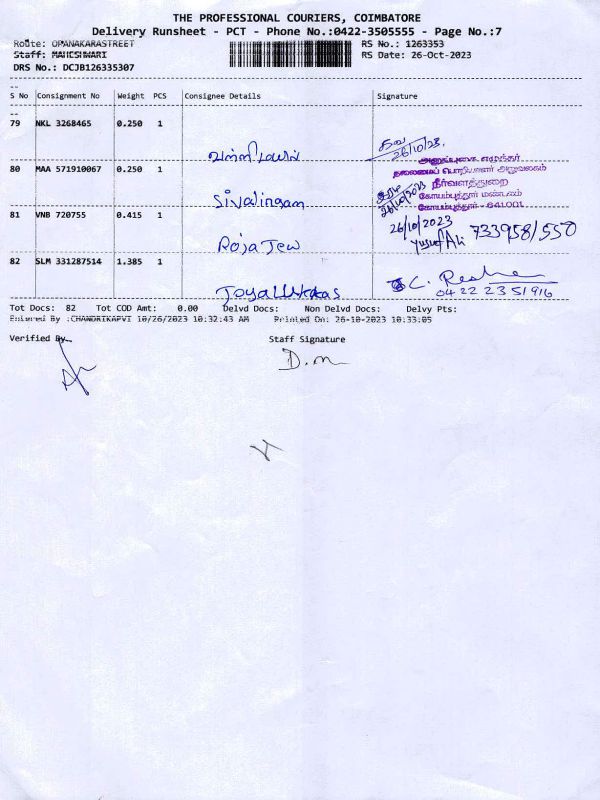 THE PROFESSIONAL COURIERS, COIMBATORE
Delivery Runsheet - PCT - Phone No.:0422-3505555 - Page No.:7
Route: OPANAKARASTREET
RS No.: 1263353
Staff: MAHESHWARI
RS Date: 26-Oct-2023
DRS No.: DCJB126335307
S No Consignment No Weight PCS Consignee Details Signature
79 NKL 3268465 0.250 1
26/10/23.
80 MAA 571910067 0.250 1
Sivalingam
அனுப்புகை எழுத்தர்
தலைமைப் பொறியாளர் அலுவலகம்
நீர்வளத்துறை
கோயம்புத்தூர் மண்டலம்
கோயம்புத்தூர் - 641001
26/10/2023
81 VNB 720755 0.415 1
Roja Jew
26/10/2023
Yusuf Ali 733958/550
82 SLM 331287514 1.385 1
C.
0422 2351916
Tot Docs: 82 Tot COD Amt: 0.00 Delvd Docs: Non Delvd Docs: Delvy Pts:
Entered By :CHANDRIKAPVI 10/26/2023 10:32:43 AM Printed On: 26-10-2023 10:33:05
Verified By Staff Signature
D.m